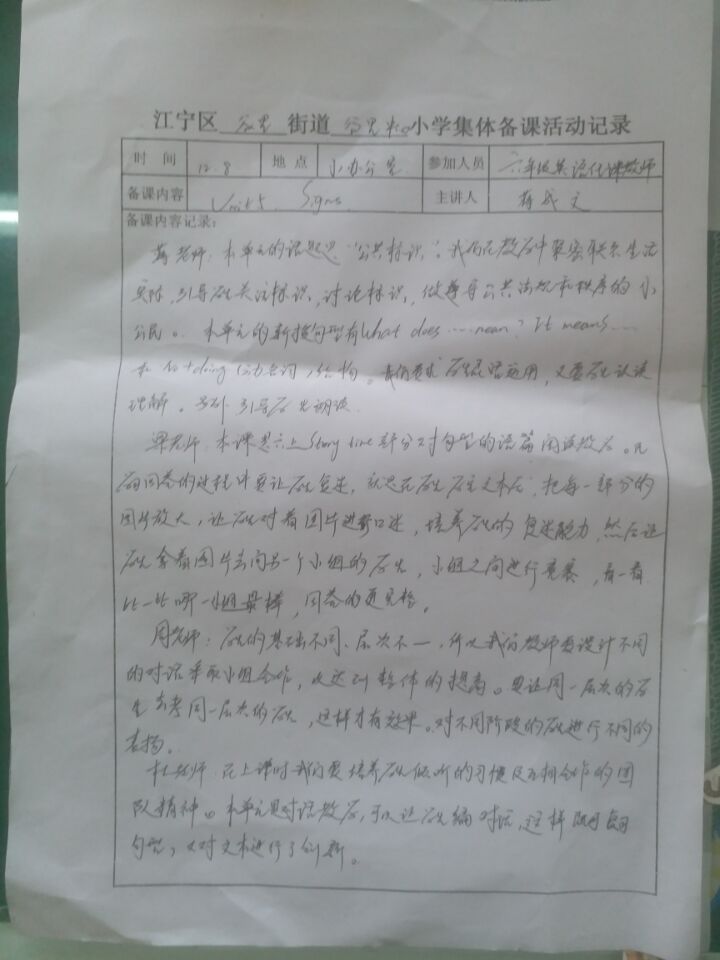 江宁区 街道 小学集体备课活动记录
时 间 12.8 地 点 小办公室 参加人员 六年级英语任课教师
备课内容 Unit 5 Signs 主讲人 蒋成文
备课内容记录:
蒋老师:本单元的话题是“公共标识”。我们在教学中紧密联系生活
实际,引导学生关注标识,讨论标识,做遵守公共法规和秩序的小
公民。本单元的新授句型有What does ……mean? It means……
和 No+doing(动名词)结构。我们要求学生灵活运用,又要学生认读
理解。 引导学生朗读
梁老师:本课是六上Story time部分对句型的语篇阅读教学。在
回答的过程中要让学生复述,就是在学生学完文本后,把每一部分的
图片放大,让学生对着图片进行口述,培养学生的复述能力,然后让
学生拿着图片去问另一个小组的学生,小组之间进行竞赛,看一看
比一比哪一小组最棒,回答的更完整。
周老师:学生的基础不同、层次不一,所以我们教师要设计不同
的对话采取小组合作,以达到整体的提高。要让同一层次的学
生去考同一层次的学生,这样才有效果。对不同阶段的学生进行不同的
表扬。
杜老师:在上课时我们要培养学生倾听的习惯及互相合作的团
队精神。本单元是对话教学,可以让学生编对话,这样既可复习
句型,又对文本进行了创新。